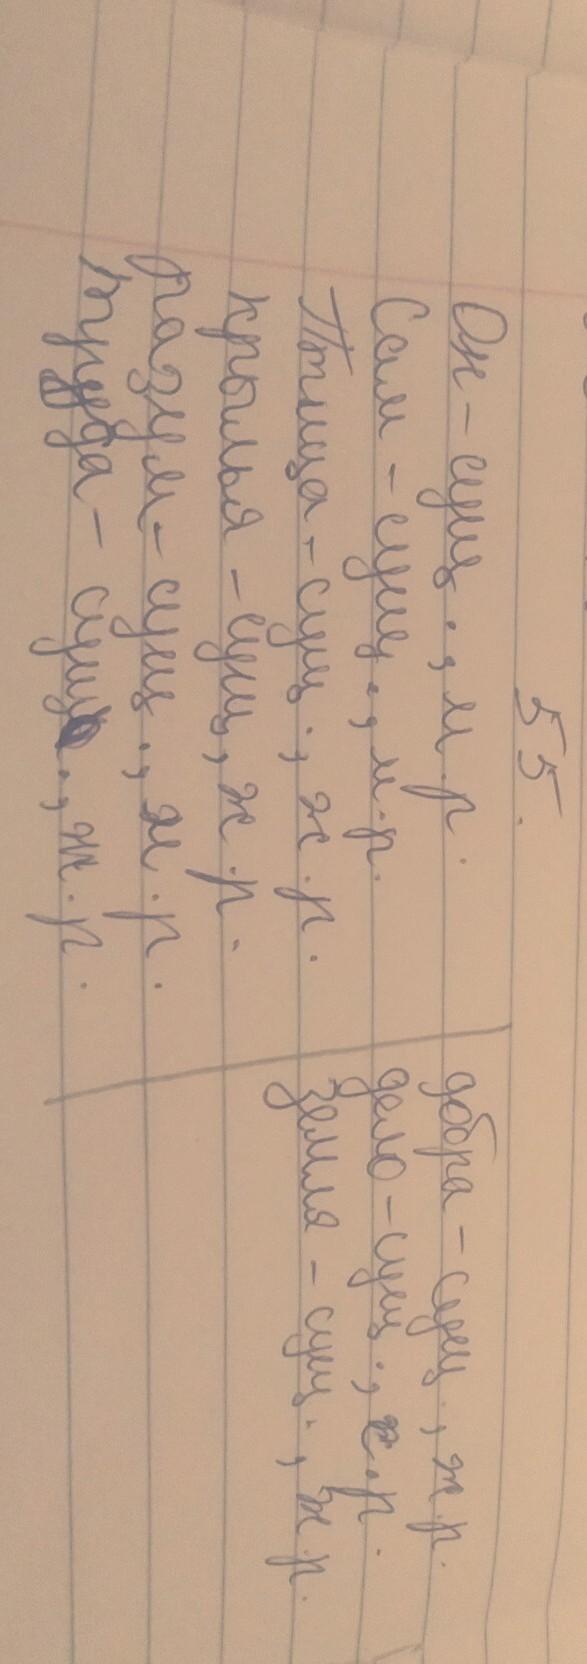 55.
Он - сущ., м.р.
Сам - сущ., м.р.
Птица - сущ., ж.р.
крылья - сущ, ж.р.
разум - сущ., м.р.
труда - сущ., ж.р.
добра - сущ., ж.р.
дело - сущ., с.р.
земля - сущ., ж.р.